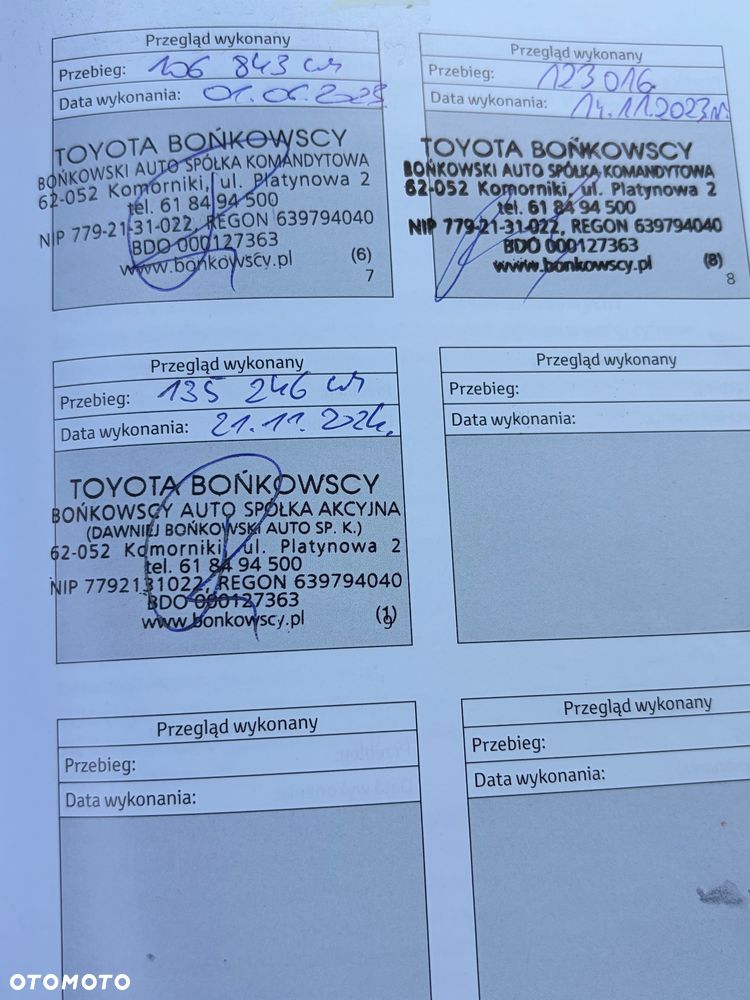 Przegląd wykonany
Przebieg: 106 843 km
Data wykonania: 01.06.2023
TOYOTA BOŃKOWSCY
BOŃKOWSKI AUTO SPÓŁKA KOMANDYTOWA
62-052 Komorniki, ul. Platynowa 2
tel. 61 84 94 500
NIP 779-21-31-022, REGON 639794040
BDO 000127363
www.bonkowscy.pl (6)
7
Przegląd wykonany
Przebieg: 123 016
Data wykonania: 14.11.2023r.
TOYOTA BOŃKOWSCY
BOŃKOWSKI AUTO SPÓŁKA KOMANDYTOWA
62-052 Komorniki, ul. Platynowa 2
tel. 61 84 94 500
NIP 779-21-31-022, REGON 639794040
BDO 000127363
www.bonkowscy.pl (8)
8
Przegląd wykonany
Przebieg: 135 246 km
Data wykonania: 21.11.2024.
TOYOTA BOŃKOWSCY
BOŃKOWSCY AUTO SPÓŁKA AKCYJNA
(DAWNIEJ BOŃKOWSKI AUTO SP. K.)
62-052 Komorniki, ul. Platynowa 2
tel. 61 84 94 500
NIP 7792131022, REGON 639794040
BDO 000127363
www.bonkowscy.pl (1)
9
Przegląd wykonany
Przebieg:
Data wykonania:
Przegląd wykonany
Przebieg:
Data wykonania:
Przegląd wykonany
Przebieg:
Data wykonania:
OTOMOTO